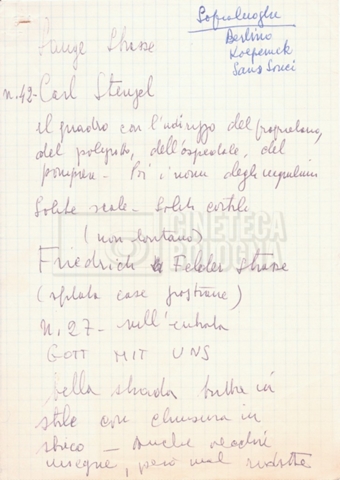 Sopraluoghi
Berlino
Koepenick
Sans Souci
Lange Strasse
n. 42 - Carl Stenzel
il quadro con l'indirizzo del proprietario,
del poliziotto, dell'ospedale, del
pompiere - Poi i nomi degli inquilini
Solite scale - Soliti cortili
(non lontano)
Friedrich Felder Strasse
(sfilata case prussiane)
n. 27 - sull'entrata
GOTT MIT UNS
bella strada tutta in
stile con chiusura in
- Anche vecchie
insegne, però mal ridotte
CINETECA
BOLOGNA